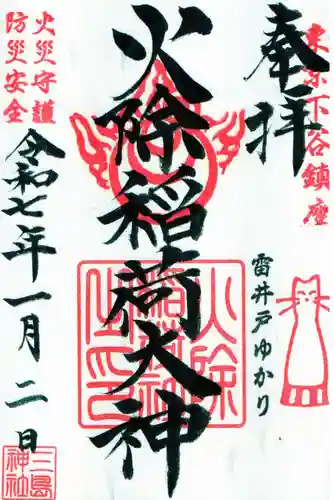 奉拝
東京下谷鎮座
雷井戸ゆかり
火除稲荷大神
火災守護
防災安全
令和七年一月二日
三島神社